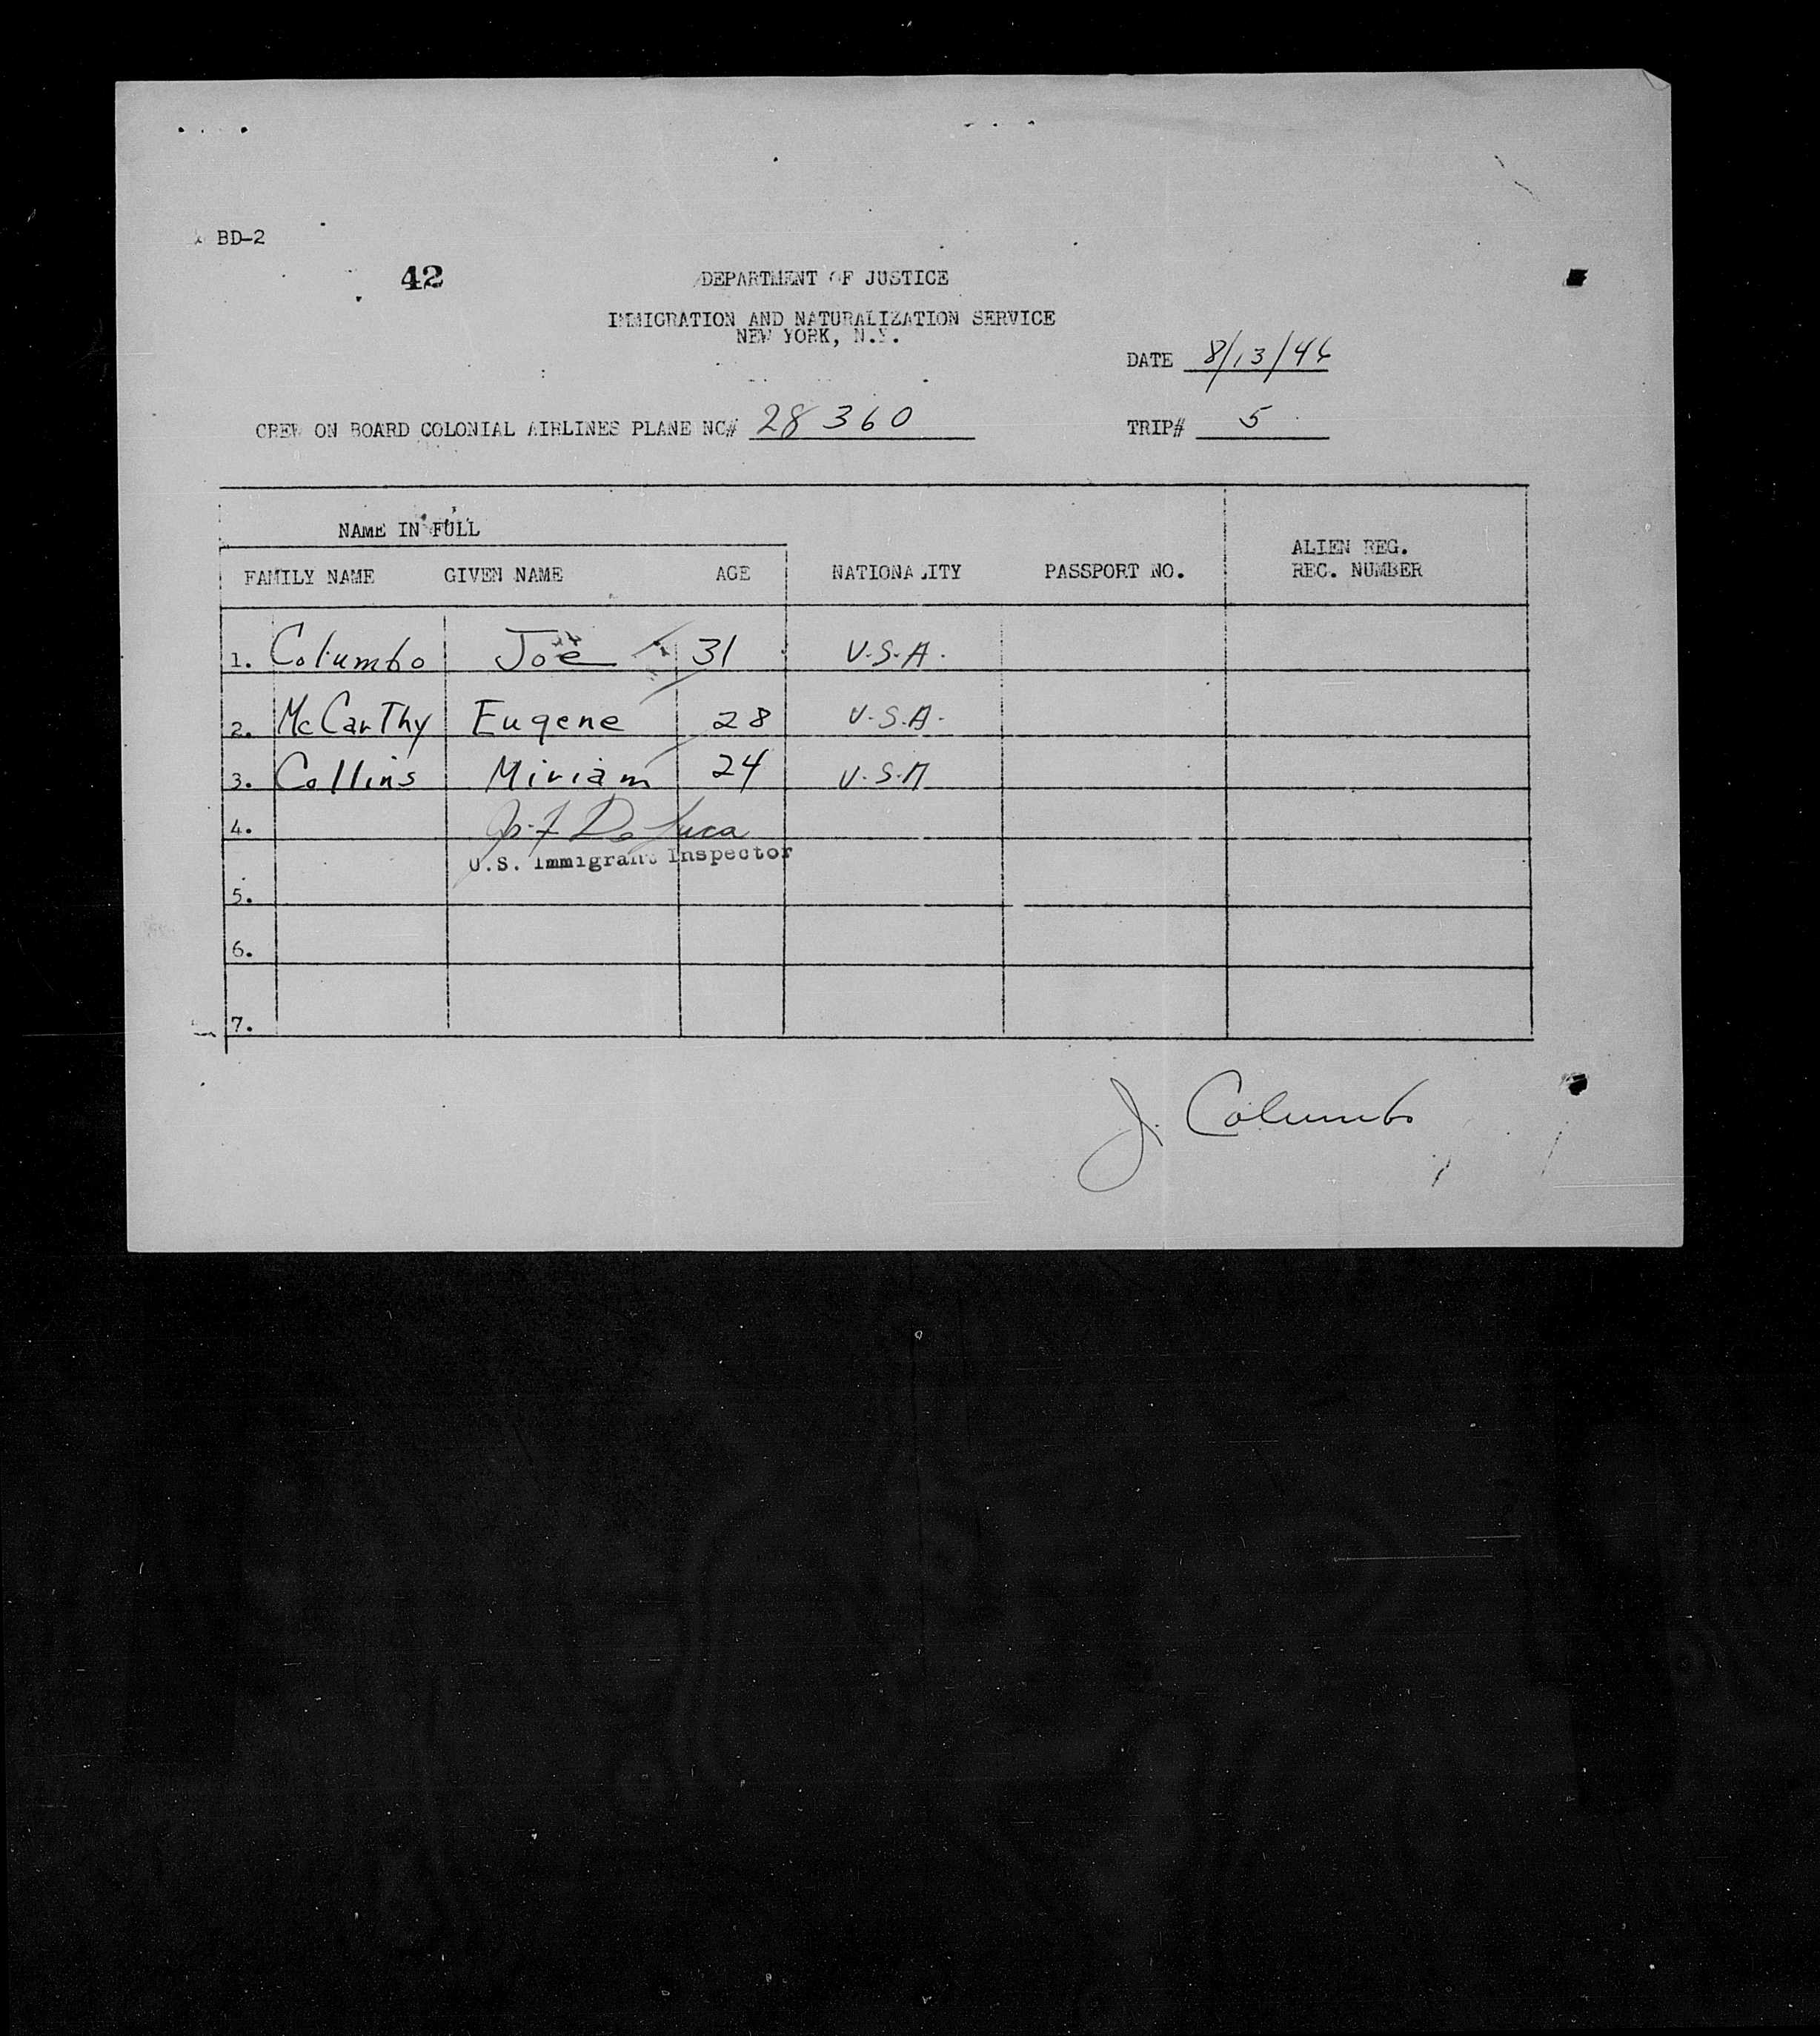 BD-2
42
DEPARTMENT OF JUSTICE
IMMIGRATION AND NATURALIZATION SERVICE
NEW YORK, N.Y.
DATE 8/13/46
CREW ON BOARD COLONIAL AIRLINES PLANE NC# 28360 TRIP# 5
NAME IN FULL
FAMILY NAME GIVEN NAME AGE NATIONALITY PASSPORT NO. ALIEN REG. REC. NUMBER
1. Columbo Joe 31 U.S.A.
2. McCarthy Eugene 28 U.S.A.
3. Collins Miriam 24 U.S.A
4. De Luca
U.S. Immigrant Inspector
5.
6.
7.
J. Columbo